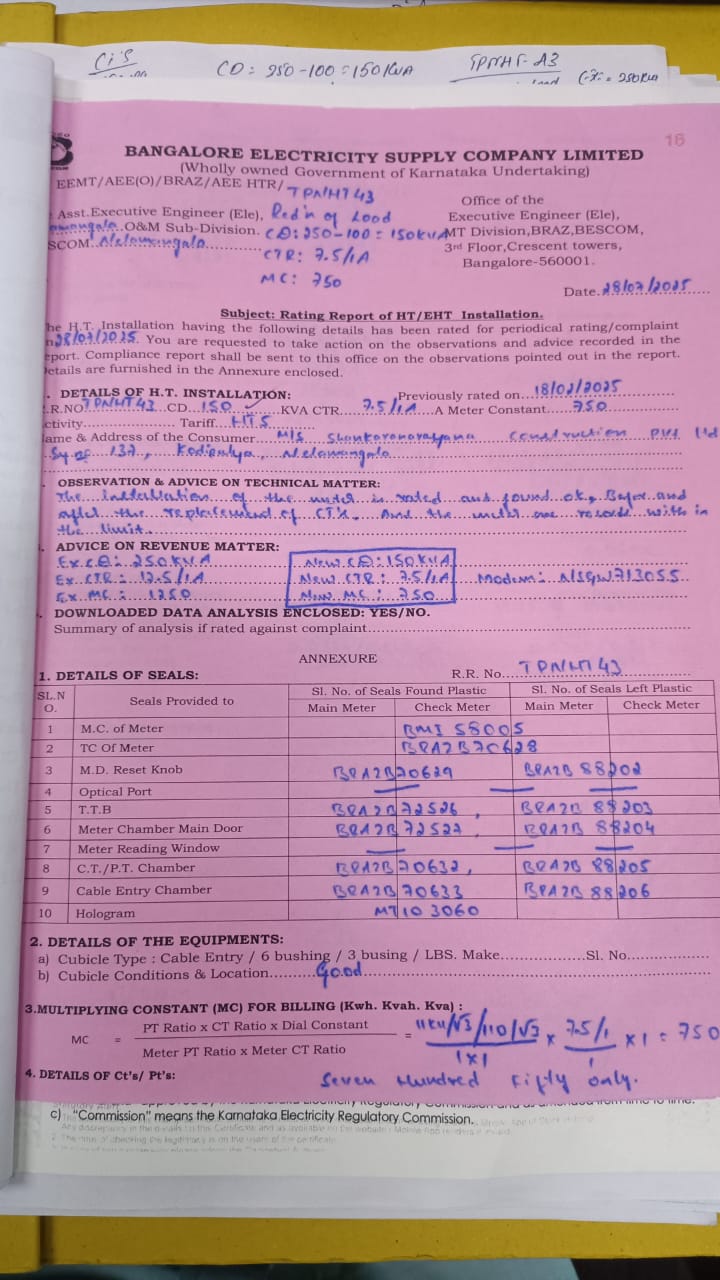 Ci's
CD: 250-100=150KVA
TPNHT-A3
16
BANGALORE ELECTRICITY SUPPLY COMPANY LIMITED
(Wholly owned Government of Karnataka Undertaking)
EEMT/AEE(O)/BRAZ/AEE HTR/ TPNHT43
Asst.Executive Engineer (Ele), Red'n of Load
O&M Sub-Division. CD:250-100=150KVA
SCOM..Nelamangala..... CTR: 7.5/1A
MC: 750
Office of the
Executive Engineer (Ele),
MT Division,BRAZ,BESCOM,
3rd Floor,Crescent towers,
Bangalore-560001.
Date.28/07/2025
Subject: Rating Report of HT/EHT Installation.
he H.T. Installation having the following details has been rated for periodical rating/complaint
n28/07/2025. You are requested to take action on the observations and advice recorded in the
eport. Compliance report shall be sent to this office on the observations pointed out in the report.
etails are furnished in the Annexure enclosed.
. DETAILS OF H.T. INSTALLATION: Previously rated on...18/02/2025
.R.NO TPNHT43 CD...150 KVA CTR....7.5/1A....A Meter Constant.....750
ctivity.............. Tariff...HT5
ame & Address of the Consumer...M/s Shankaranarayana Construction Pvt Ltd
Sy no 137, Kodigalya, Nelamangala
. OBSERVATION & ADVICE ON TECHNICAL MATTER:
The installation of the meter is rated and found ok, Before and
after the replacement of CT's. And the are with in
the limit.
. ADVICE ON REVENUE MATTER:
Ex.CD: 250KVA New CD:150KVA
Ex. CTR: 12.5/1A New CTR: 7.5/1A Modem: NSGW713055
Ex. MC: 1250 New MC: 750
. DOWNLOADED DATA ANALYSIS ENCLOSED: YES/NO.
Summary of analysis if rated against complaint.....
ANNEXURE
1. DETAILS OF SEALS: R.R. No.....TPNHT43
SL.N O. Seals Provided to Sl. No. of Seals Found Plastic Sl. No. of Seals Left Plastic
Main Meter Check Meter Main Meter Check Meter
1 M.C. of Meter BMI 58005
2 TC Of Meter BRAZB70628
3 M.D. Reset Knob BRAZB70629 BRAZB 88202
4 Optical Port — — —
5 T.T.B BRAZB72526, BRAZB 88203
6 Meter Chamber Main Door BRAZB 72527 BRAZB 88204
7 Meter Reading Window — — —
8 C.T./P.T. Chamber BRAZB70632, BRAZB 88205
9 Cable Entry Chamber BRAZB70633 BRAZB 88206
10 Hologram MT103060
2. DETAILS OF THE EQUIPMENTS:
a) Cubicle Type : Cable Entry / 6 bushing / 3 busing / LBS. Make.................Sl. No.................
b) Cubicle Conditions & Location..........Good
3.MULTIPLYING CONSTANT (MC) FOR BILLING (Kwh. Kvah. Kva) :
MC = PT Ratio x CT Ratio x Dial Constant / Meter PT Ratio x Meter CT Ratio = 11KV/√3/110/√3 / 1x1 x 7.5/1 / 1 x1 = 750
4. DETAILS OF Ct's/ Pt's: Seven Hundred Fifty Only.
c) "Commission" means the Karnataka Electricity Regulatory Commission.